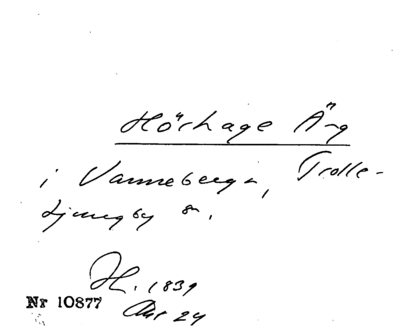 Hörhage Äng
i Vanneberga, Trolle-
Ljungby sn.
H. 1839
Nr 10877
Akt 24